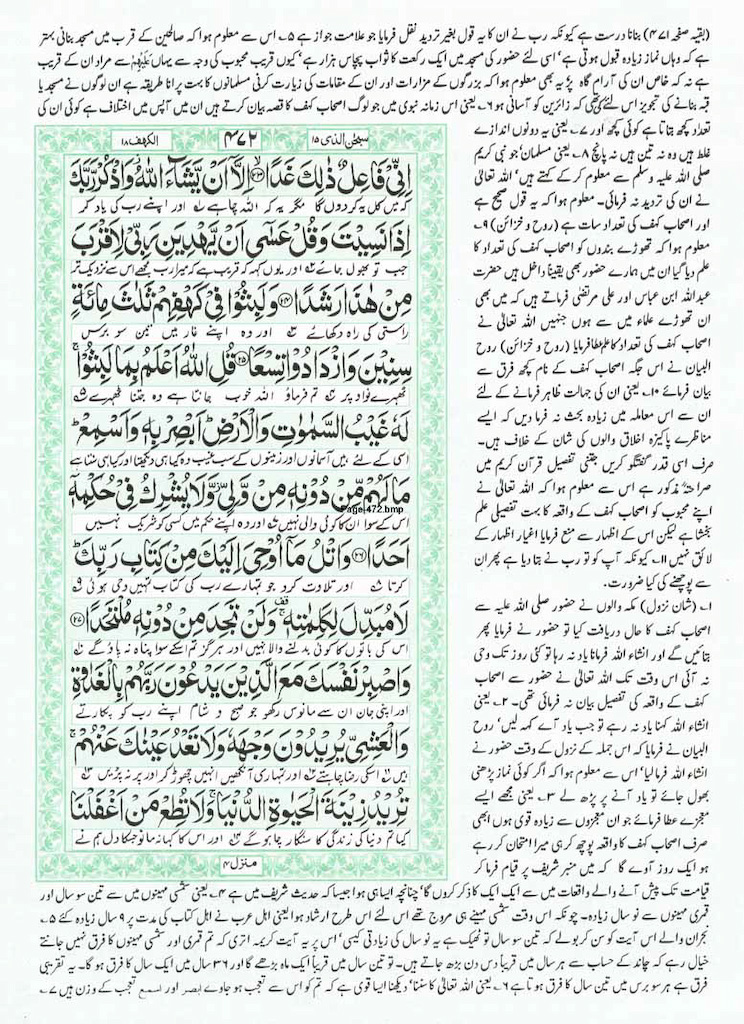 (بقیہ صفحہ ۴۷۱) بنانا درست ہے کیونکہ رب نے ان کا یہ قول بغیر تردید نقل فرمایا جو علامت جواز ہے ۵؎ اس سے معلوم ہوا کہ صالحین کے قرب میں مسجد بنانی بہتر
ہے کہ وہاں نماز زیادہ قبول ہوتی ہے' اسی لئے حضور کی مسجد میں ایک رکعت کا ثواب پچاس ہزار ہے' کیوں قریب محبوب کی وجہ سے یہاں علیہم سے مراد ان کے قریب
ہے نہ کہ خاص ان کی آرام گاہ پر یہ بھی معلوم ہوا کہ بزرگوں کے مزارات اور ان کے مقامات کی زیارت کرنی مسلمانوں کا بہت پرانا طریقہ ہے ان لوگوں نے مسجد یا
قبہ بنانے کی تجویز اس لئے کی تھی کہ زائرین کو آسانی ہو ۶؎ یعنی اس زمانہ نبوی میں جو لوگ اصحاب کہف کا قصہ بیان کرتے ہیں ان میں آپس میں اختلاف ہے کوئی ان کی
تعداد کچھ بتاتا ہے کوئی کچھ اور ۷؎ یعنی یہ دونوں اندازے
غلط ہیں وہ نہ تین ہیں نہ پانچ ۸؎ یعنی مسلمان' جو نبی کریم
صلی اللہ علیہ وسلم سے معلوم کر کے کہتے ہیں' اللہ تعالیٰ
نے ان کی تردید نہ فرمائی۔ معلوم ہوا کہ یہ قول صحیح ہے
اور اصحاب کہف کی تعداد سات ہے (روح و خزائن) ۹؎
معلوم ہوا کہ تھوڑے بندوں کو اصحاب کہف کی تعداد کا
علم دیا گیا ان میں ہمارے حضور بھی یقیناً داخل ہیں حضرت
عبداللہ ابن عباس اور علی مرتضی فرماتے ہیں کہ میں بھی
ان تھوڑے علماء میں سے ہوں جنہیں اللہ تعالیٰ نے
اصحاب کہف کی تعداد کا علم عطا فرمایا (روح و خزائن) روح
البیان نے اس جگہ اصحاب کہف کے نام کچھ فرق سے
بیان فرمائے ۱۰؎ یعنی ان کی جہالت ظاہر فرمانے کے لئے
ان سے اس معاملہ میں زیادہ بحث نہ فرما دیں کہ ایسے
مناظرے پاکیزہ اخلاق والوں کی شان کے خلاف ہیں۔
صرف اسی قدر گفتگو کریں جتنی تفصیل قرآن کریم میں
صراحتاً مذکور ہے اس سے معلوم ہوا کہ اللہ تعالیٰ نے
اپنے محبوب کو اصحاب کہف کے واقعہ کا بہت تفصیلی علم
بخشا ہے لیکن اس کے اظہار سے منع فرمایا اغیار اظہار کے
لائق نہیں ۱۱؎ کیونکہ آپ کو تو رب نے بتا دیا ہے پھر ان
سے پوچھنے کی کیا ضرورت۔
۱؎ (شان نزول) مکہ والوں نے حضور صلی اللہ علیہ سے
اصحاب کہف کا حال دریافت کیا تو حضور نے فرمایا پھر
بتائیں گے اور انشاء اللہ فرمانا یاد نہ رہا تو کئی روز تک وحی
نہ آئی اس وقت تک اللہ تعالیٰ نے حضور سے اصحاب
کہف کے واقعہ کی تفصیل بیان نہ فرمائی تھی۔ ۲؎ یعنی
انشاء اللہ کہنا یاد نہ رہے تو جب یاد آئے کہہ لیں' روح
البیان نے فرمایا کہ اس جملہ کے نزول کے وقت حضور نے
انشاء اللہ فرما لیا' اس سے معلوم ہوا کہ اگر کوئی نماز پڑھنی
بھول جائے تو یاد آنے پر پڑھ لے ۳؎ یعنی مجھے ایسے
معجزے عطا فرمائے جو ان معجزوں سے زیادہ قوی ہوں ابھی
صرف اصحاب کہف کا واقعہ پوچھ کر ہی میرا امتحان کر رہے
ہو ایک روز آوے گا کہ میں منبر شریف پر قیام فرما کر
سبحٰن الذی ۱۵
۴۷۲
الکہف ۱۸
اِنِّیْ فَاعِلٌ ذٰلِكَ غَدًا ﴿۲۳﴾ اِلَّاۤ اَنْ یَّشَآءَ اللّٰهُ وَاذْكُرْ رَّبَّكَ
کہ میں کل یہ کر دوں گا مگر یہ کہ اللہ چاہے اور اپنے رب کی یاد کر
اِذَا نَسِیْتَ وَقُلْ عَسٰۤی اَنْ یَّهْدِیَنِ رَبِّیْ لِاَقْرَبَ
جب تو بھول جائے اور یوں کہہ کہ قریب ہے کہ میرا رب مجھے اس سے نزدیک تر
مِنْ هٰذَا رَشَدًا ﴿۲۴﴾ وَلَبِثُوْا فِیْ كَهْفِهِمْ ثَلٰثَ مِائَةٍ
راستی کی راہ دکھائے اور وہ اپنے غار میں تین سو برس
سِنِیْنَ وَازْدَادُوْا تِسْعًا ﴿۲۵﴾ قُلِ اللّٰهُ اَعْلَمُ بِمَا لَبِثُوْا ۚ
ٹھہرے نو اوپر تم فرماؤ اللہ خوب جانتا ہے وہ جتنا ٹھہرے
لَهٗ غَیْبُ السَّمٰوٰتِ وَالْاَرْضِ ؕ اَبْصِرْ بِهٖ وَاَسْمِعْ ؕ
اسی کے لئے ہیں آسمانوں اور زمینوں کے سب غیب وہ کیا ہی دیکھتا اور کیا ہی سنتا ہے
مَا لَهُمْ مِّنْ دُوْنِهٖ مِنْ وَّلِیٍّ ؗ وَّلَا یُشْرِكُ فِیْ حُكْمِهٖۤ
اس کے سوا ان کا کوئی والی نہیں اور وہ اپنے حکم میں کسی کو شریک نہیں
Page-472.bmp
اَحَدًا ﴿۲۶﴾ وَاتْلُ مَاۤ اُوْحِیَ اِلَیْكَ مِنْ كِتَابِ رَبِّكَ ؕ
کرتا اور تلاوت کرو جو تمہارے رب کی کتاب تمہیں وحی ہوئی
لَا مُبَدِّلَ لِكَلِمٰتِهٖ ۫ۚ وَلَنْ تَجِدَ مِنْ دُوْنِهٖ مُلْتَحَدًا ﴿۲۷﴾
اس کی باتوں کا کوئی بدلنے والا نہیں اور ہرگز تم اسکے سوا پناہ نہ پاؤ گے
وَاصْبِرْ نَفْسَكَ مَعَ الَّذِیْنَ یَدْعُوْنَ رَبَّهُمْ بِالْغَدٰوةِ
اور اپنی جان ان سے مانوس رکھو جو صبح و شام اپنے رب کو پکارتے
وَالْعَشِیِّ یُرِیْدُوْنَ وَجْهَهٗ وَلَا تَعْدُ عَیْنٰكَ عَنْهُمْ ۚ
ہیں اسکی رضا چاہتے اور تمہاری آنکھیں انہیں چھوڑ کر اور پر نہ پڑیں
تُرِیْدُ زِیْنَةَ الْحَیٰوةِ الدُّنْیَا ۚ وَلَا تُطِعْ مَنْ اَغْفَلْنَا
کیا تم دنیا کی زندگی کا سنگار چاہو گے اور اس کا کہا نہ مانو جسکا دل ہم نے
منزل ۴
قیامت تک پیش آنے والے واقعات میں سے ایک ایک کا ذکر کروں گا' چنانچہ ایسا ہی ہوا جیسا کہ حدیث شریف میں ہے ۴؎ یعنی شمسی مہینوں میں سے تین سو سال اور
قمری مہینوں سے نو سال زیادہ۔ چونکہ اس وقت شمسی مہینے ہی مروج تھے اس لئے اس طرح ارشاد ہوا یعنی اہل عرب نے اہل کتاب کی مدت پر ۹ سال زیادہ کئے ۵؎
نجران والے اس آیت کو سن کر بولے کہ تین سو سال تو ٹھیک ہے یہ نو سال کی زیادتی کیسی' اس پر یہ آیت کریمہ اتری کہ تم قمری اور شمسی مہینوں کا فرق نہیں جانتے
خیال رہے کہ چاند کے حساب سے ہر سال میں قریباً دس دن بڑھ جاتے ہیں۔ تو تین سال میں قریباً ایک ماہ بڑھے گا اور ۳۶ سال میں ایک سال کا فرق ہو گا۔ یہ تقریبی
فرق ہے ہر سو برس میں تین سال کا فرق ہوتا ہے ۶؎ یعنی اللہ تعالیٰ کا سننا' دیکھنا ایسا قوی ہے کہ تم کو اس سے تعجب ہو جاوے ابصر اور اسمع تعجب کے وزن ہیں ۷؎